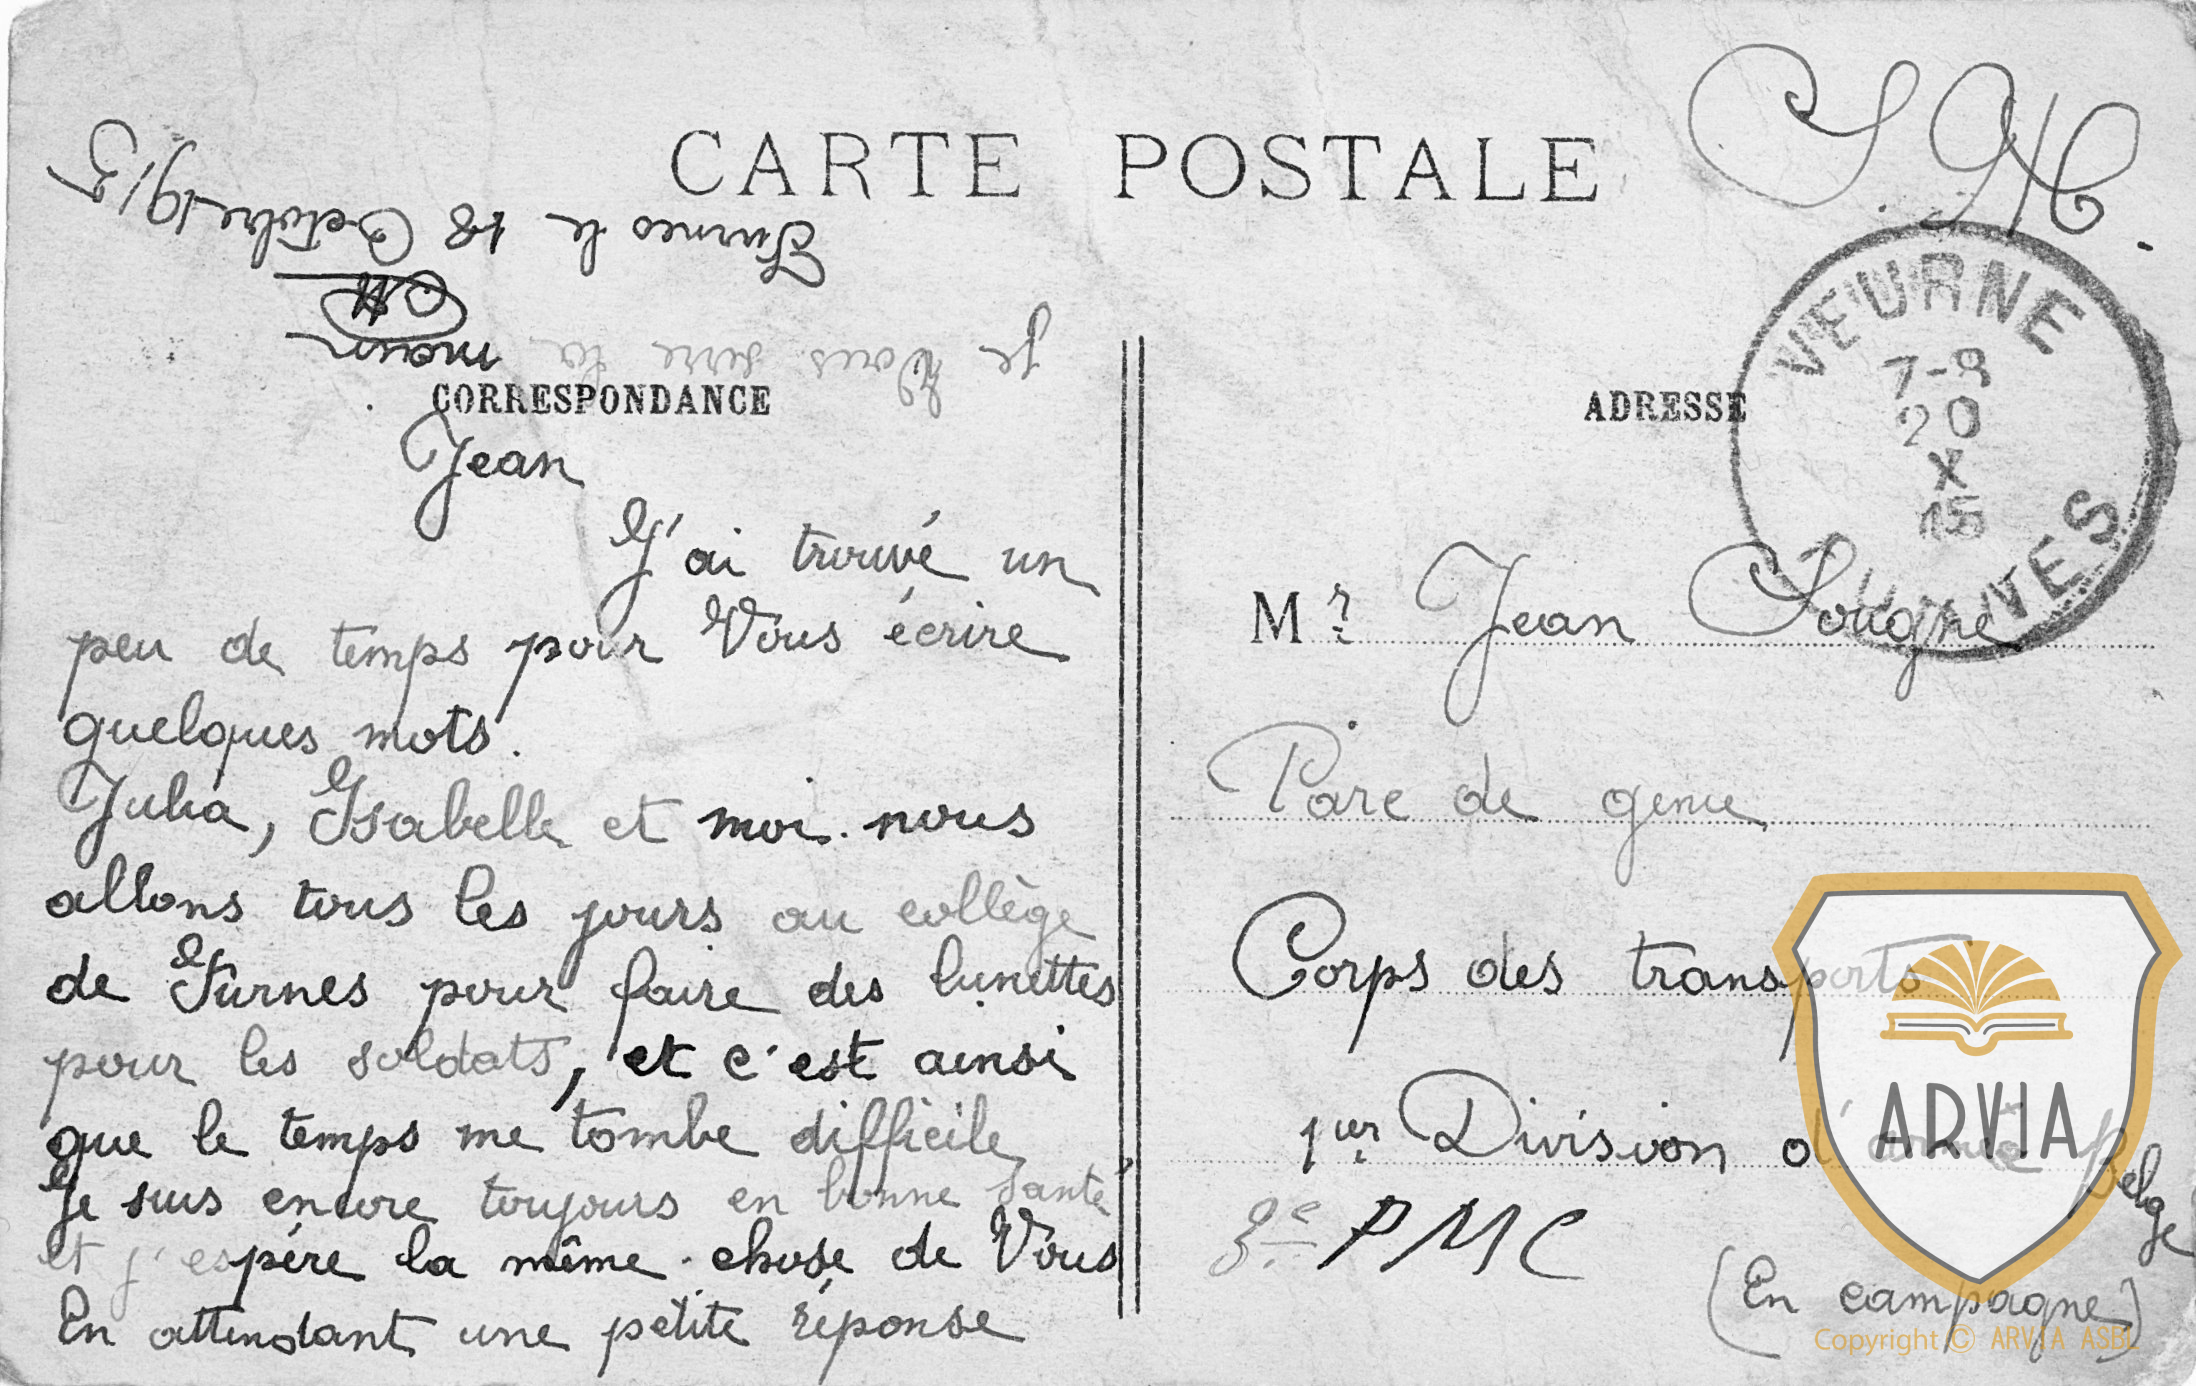 CARTE POSTALE
S. M.
Furnes le 18 Octobre 1915
CORRESPONDANCE
Jean
J'ai trouvé un
peu de temps pour Vous écrire
quelques mots.
Julia, Isabelle et moi. nous
allons tous les jours au collège
de Furnes pour faire des lunettes
pour les soldats, et c'est ainsi
que le temps me tombe difficile,
Je suis encore toujours en bonne santé,
et j'espère la même chose de Vous
En attendant une petite réponse
Je Vous serre la
main
ADRESSE
VEURNE
7-8
20
X
15
FURNES
Mr. Jean Sougné
Parc de genie
Corps des transports
1ier Division d'armée Belge
3e PMC
(En campagne)
ARVIA
Copyright © ARVIA ASBL